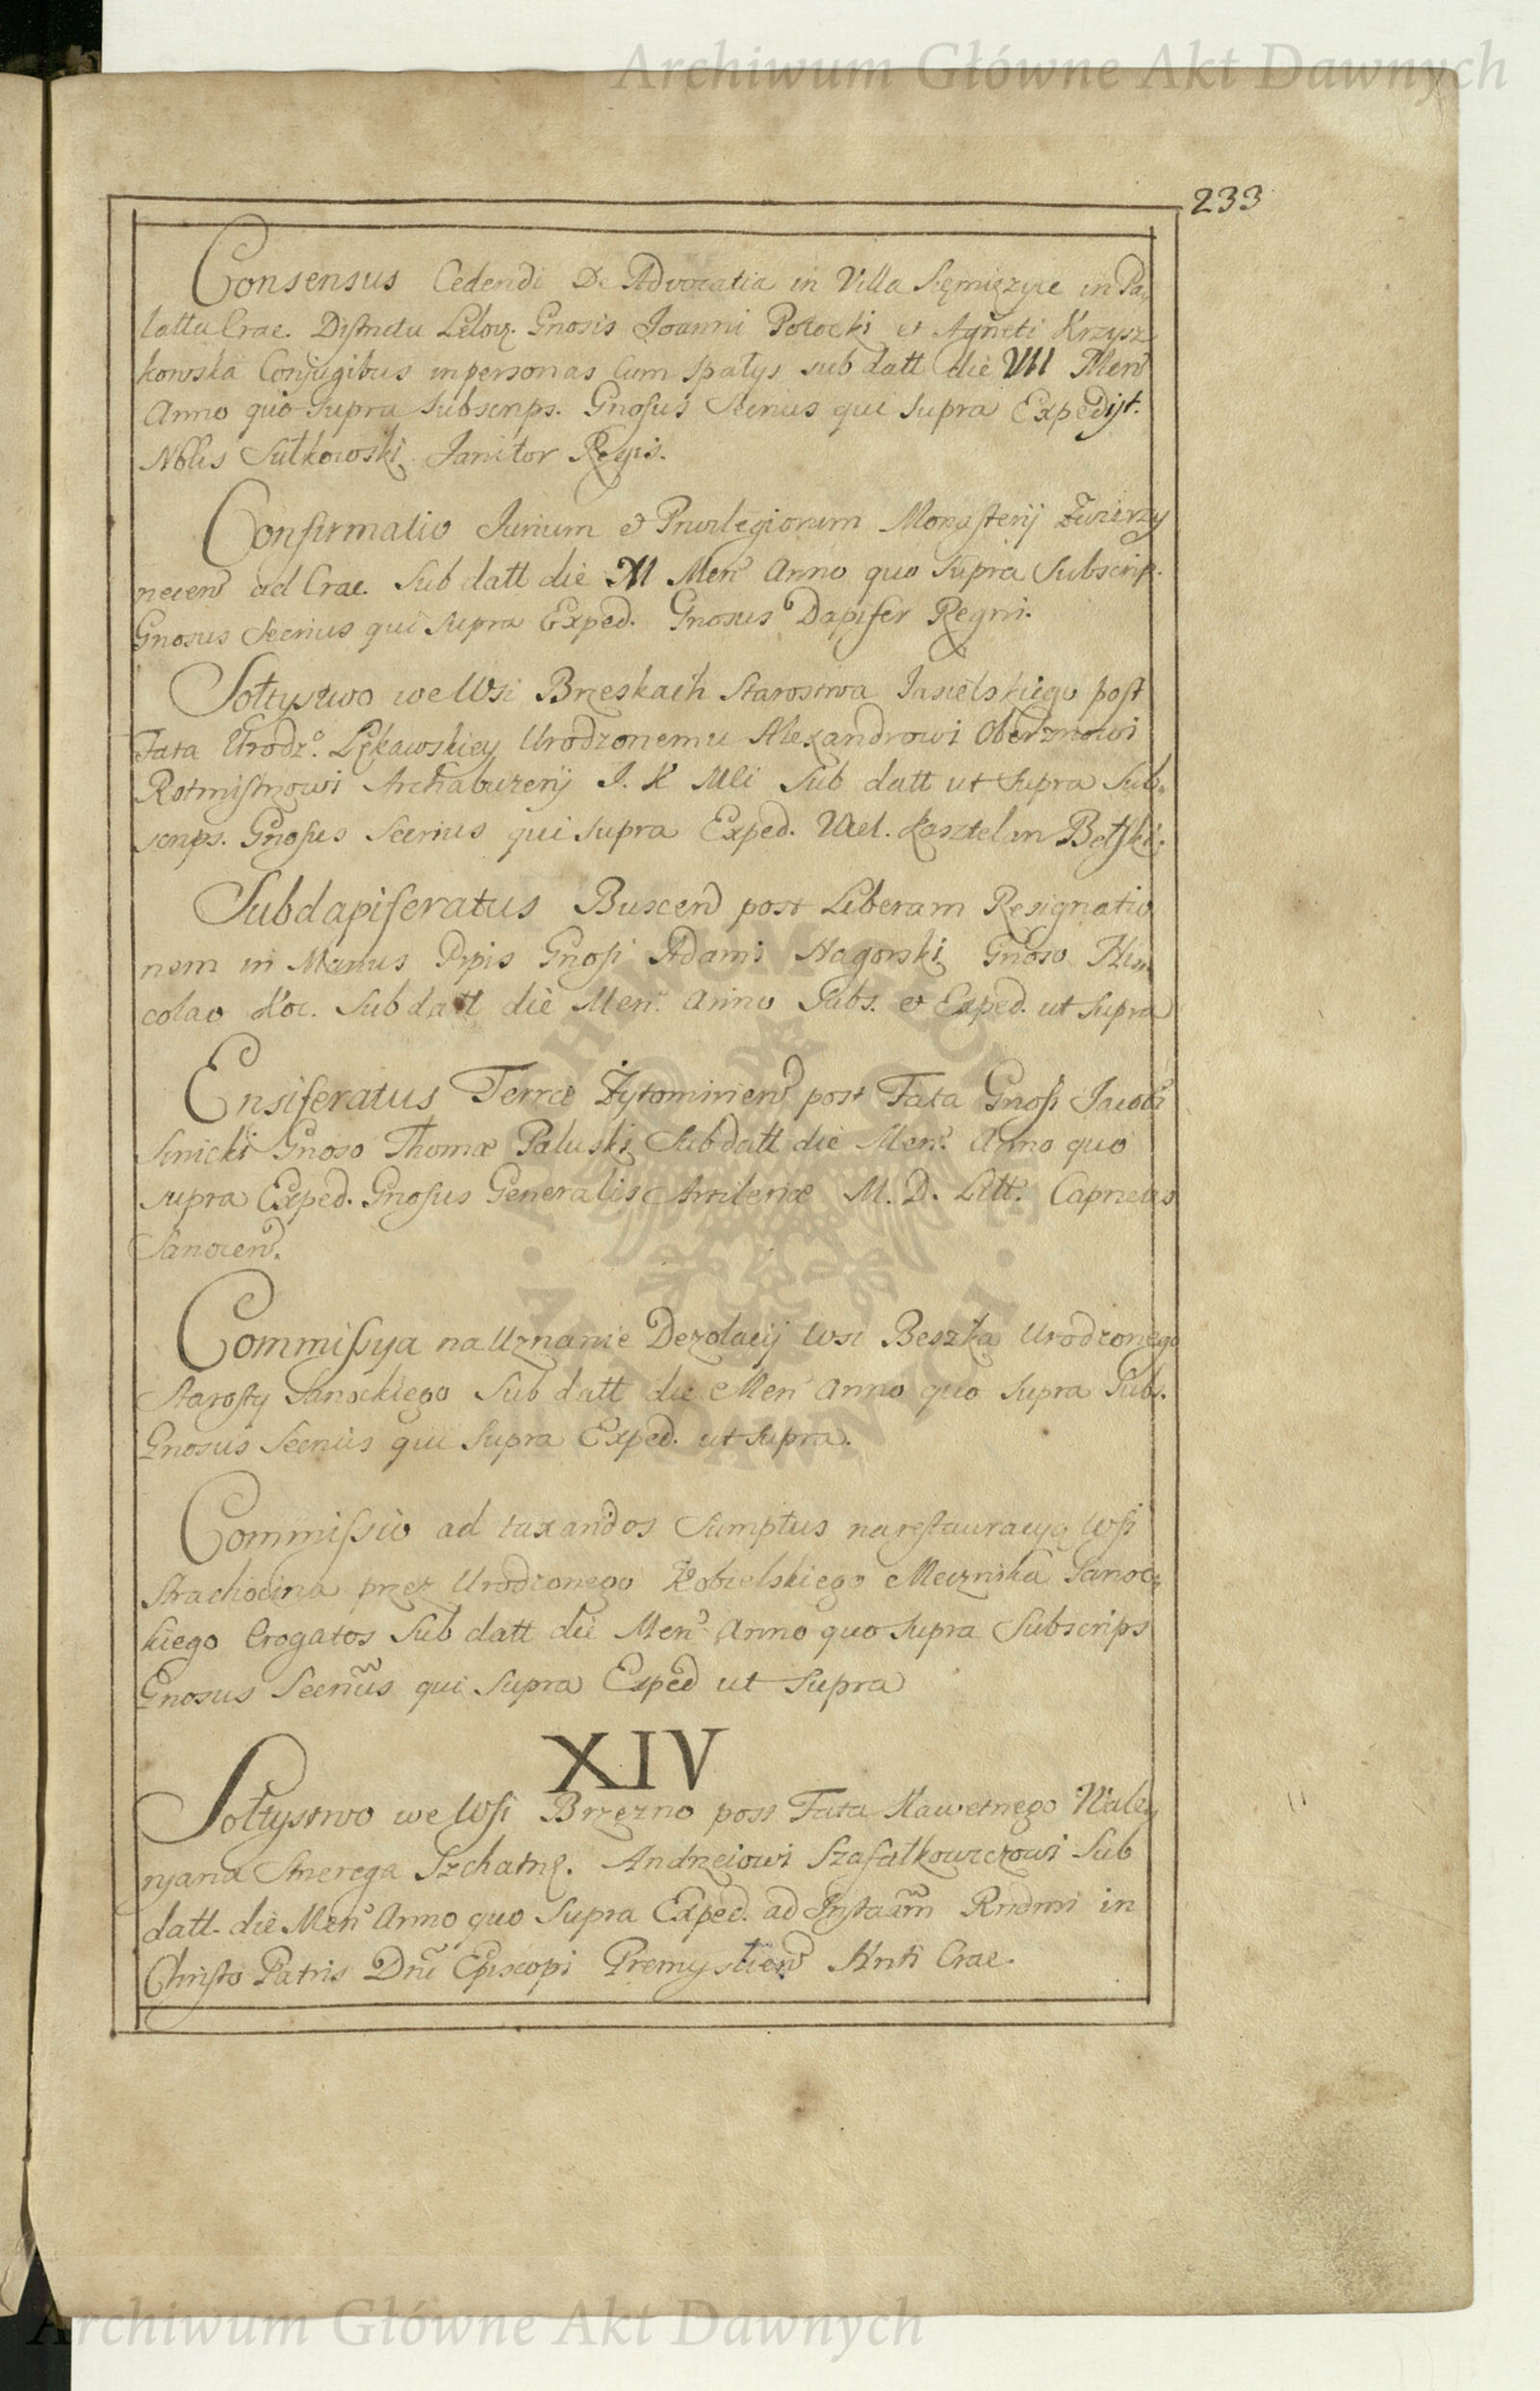 Archiwum Główne Akt Dawnych
233
Consensus Cedendi De Advocatia in Villa Siemięzyce in Pa,
lattu Crac. Districtu Lelov. Gnosis Joanni Potocki et Agneti Krzysz
kowska Conjugibus in personas Cum spatys sub datt die VIII Men
Anno quo supra subscrips. Gnosus Secrius qui supra Expedijt.
Nblis Sułkowski Janitor Regis.
Confirmatio Jurium et Privilegiorum Monasterij Zwierzy
necen ad Crac. Sub datt die XI Men Anno quo supra Subscrip.
Gnosus Secrius qui supra Exped. Gnosus Dapifer Regni.
Sołtystwo we Wsi Brzeskach Starostwa Jasielskiego post
Fata Urodz. Lękawskiey Urodzonemu Alexandrowi Oberznowi
Rotmistrzowi Archabuzerij J. K Mci Sub datt ut supra Sub,
scrips. Gnosus Secrius qui supra Exped. Wiel. Kasztelan Betski.
Subdapiferatus Buscen post Liberam Resignatio
nem in Manus Pripis Gnosi Adami Nagorski Gnoso
colao Koc. Sub datt die Men. Anno Subs. et Exped. ut supra
Ensiferatus Terræ Żytomirien post Fata Gnosi Jacobi
Sinicki Gnoso Thomæ Paluski Sub datt die Men. Anno quo
supra Exped. Gnosus Generalis Artileriæ M. D. Litt. Capneus
Sanocen.
Commissya na Uznanie Dezolacij Wsi Beszka Urodzonego
Starosty Sanockiego Sub datt die Men Anno quo supra Subs.
Gnosus Secrius qui supra Exped. ut supra.
Commissio ad taxandos Sumptus na restauracyą Wsi
Strachocina przez Urodzonego Kobielskiego Miecznika Sanoc,
kiego Erogatos Sub datt die Men Anno quo supra Subscrips
Gnosus Secrius qui supra Exped ut supra
XIV
Sołtystwo we Wsi Brzezno post Fata Sławetnego Waler
ryana Strerega Szchatnę. Andrzeiowi Szafałkowiczowi Sub
datt. die Men Anno quo supra Exped. ad Instaam Rndmi in
Christo Patris Dni Episcopi Premyslien Knti Crac.
Archiwum Główne Akt Dawnych